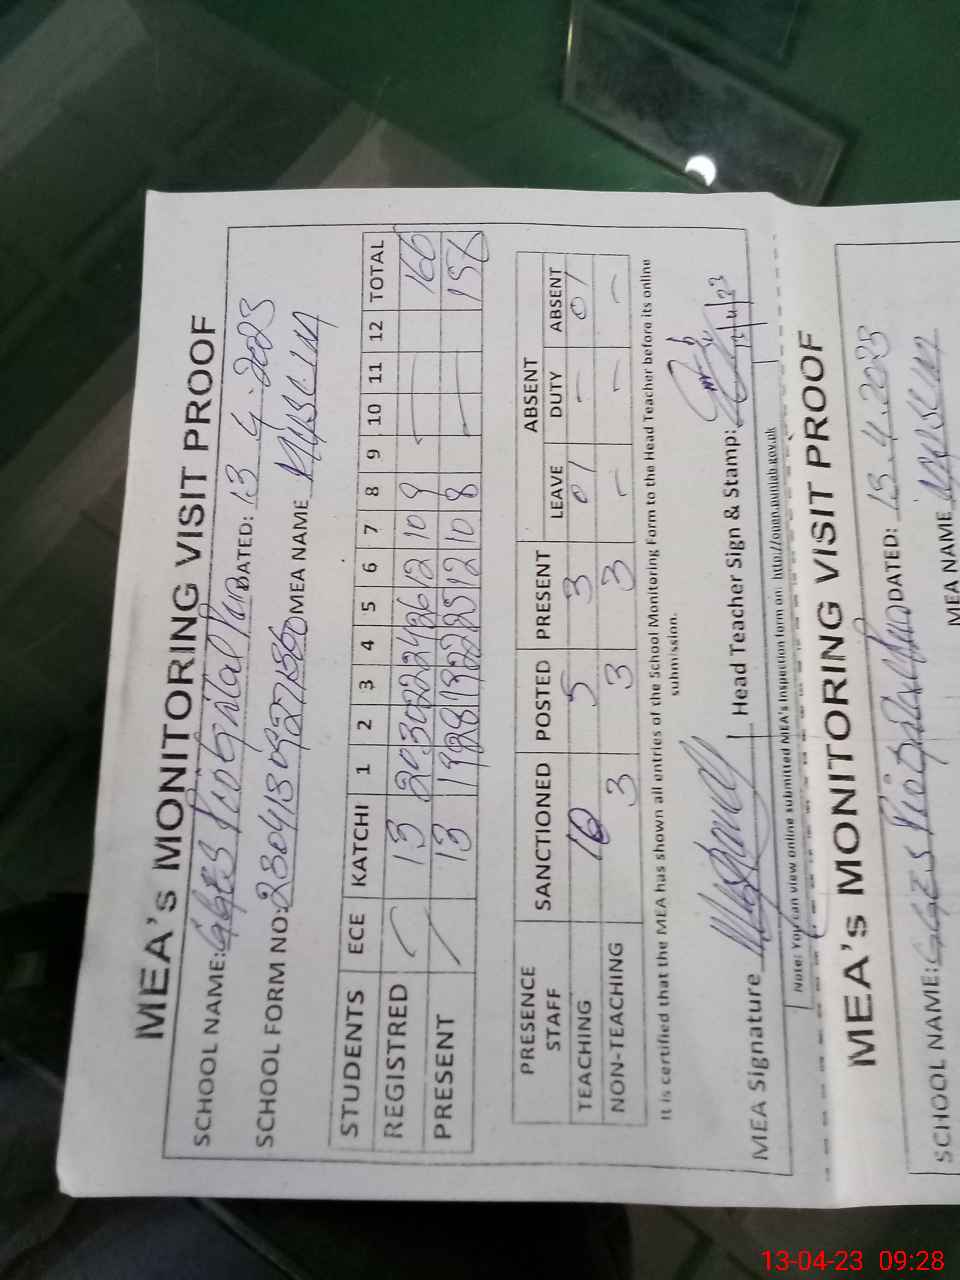 MEA's MONITORING VISIT PROOF
SCHOOL NAME: GGES DATED: 13 4.2023
SCHOOL FORM NO: MEA NAME MUSLIM
STUDENTS ECE KATCHI 1 2 3 4 5 6 7 8 9 10 11 12 TOTAL
REGISTRED 13 20 30 22 24 26 12 10 9 166
PRESENT 13 19 28 22 25 12 10 8 158
PRESENCE STAFF SANCTIONED POSTED PRESENT ABSENT
LEAVE DUTY ABSENT
TEACHING 10 5 3 01 - 01
NON-TEACHING 3 3 3 - - -
It is certified that the MEA has shown all entries of the School Monitoring Form to the Head Teacher before its online
submission.
MEA Signature Head Teacher Sign & Stamp: 13/4/23
Note: You can view online submitted MEA's Inspection form on: http://open.punjab.gov.pk
MEA's MONITORING VISIT PROOF
SCHOOL NAME: GGES DATED: 13.4.2023
MEA NAME MUSLIM
13-04-23 09:28